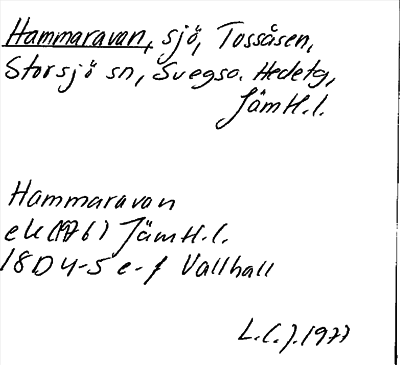 Hammaravan, sjö, Tossåsen,
Storsjö sn, Svegso. Hedetg,
JämH.l.
Hammaravan
ek (1976) JämH.l.
18D 4-5 e-f Vallhall
L.C.J. 1977